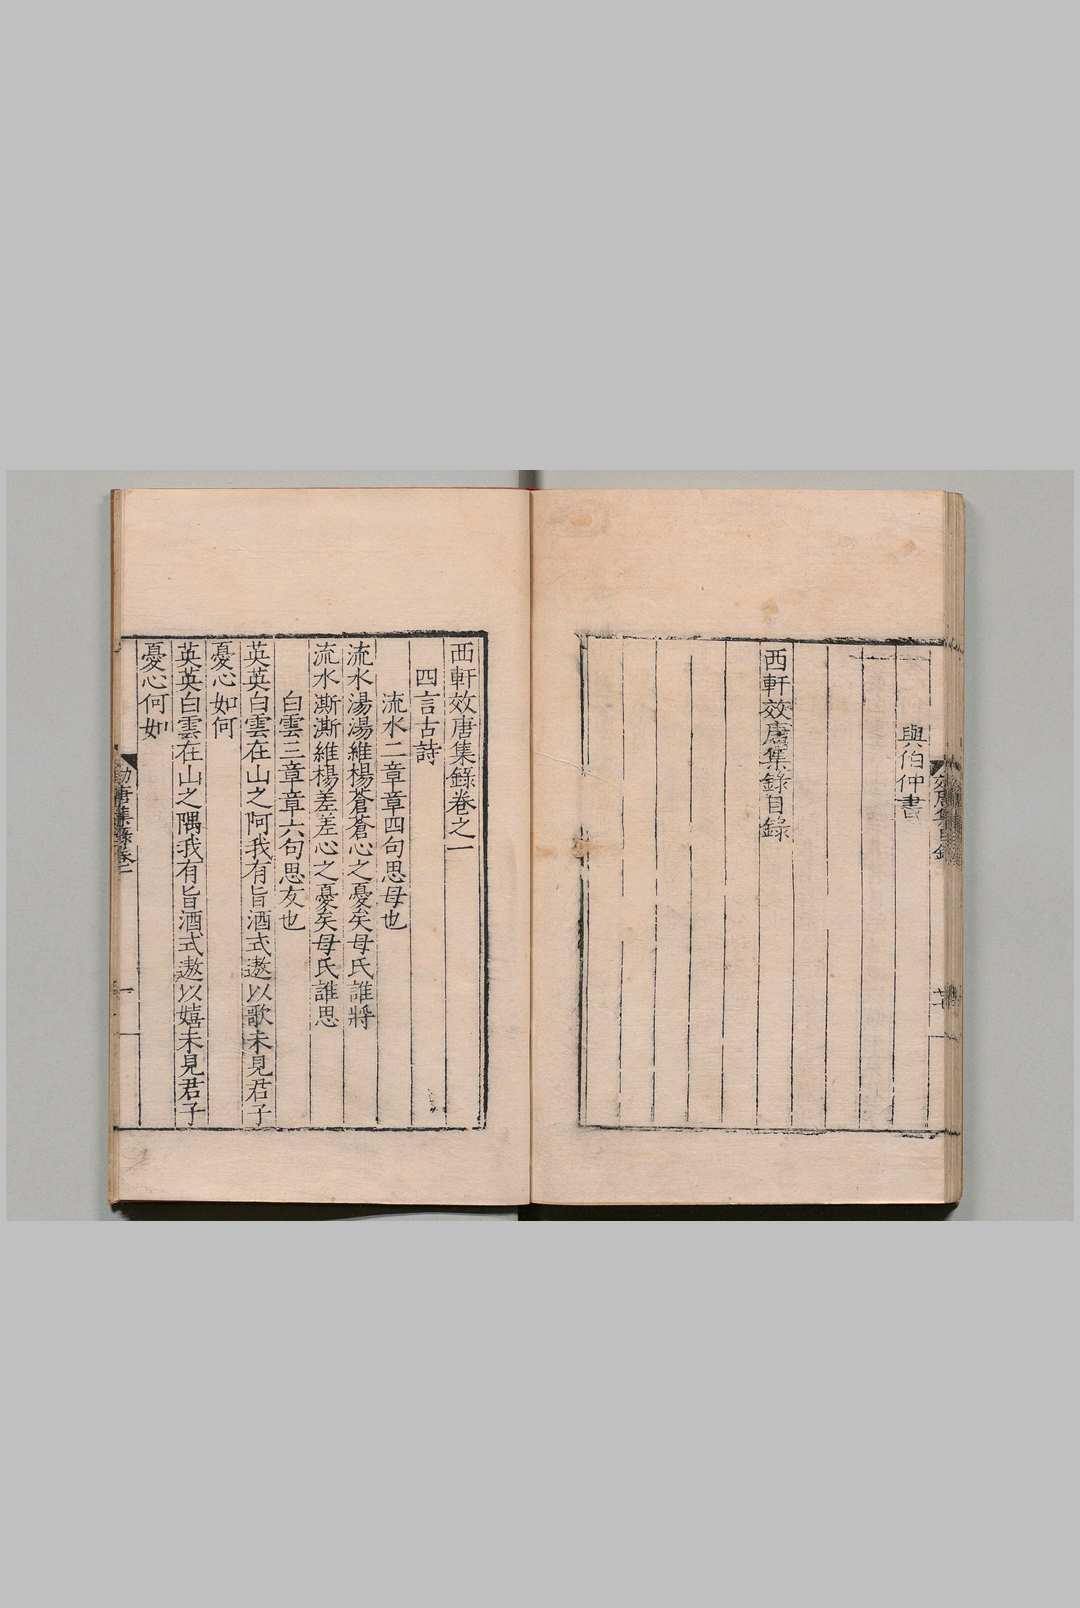 與伯仲書
西軒效唐集錄目錄
西軒效唐集錄卷之一
四言古詩
流水二章章四句思母也
流水湯湯維楊蒼蒼心之憂矣母氏誰將
流水澌澌維楊差差心之憂矣母氏誰思
白雲三章章六句思友也
英英白雲在山之阿我有旨酒式遨以歌未見君子
憂心如何
英英白雲在山之隅我有旨酒式遨以嬉未見君子
憂心何如